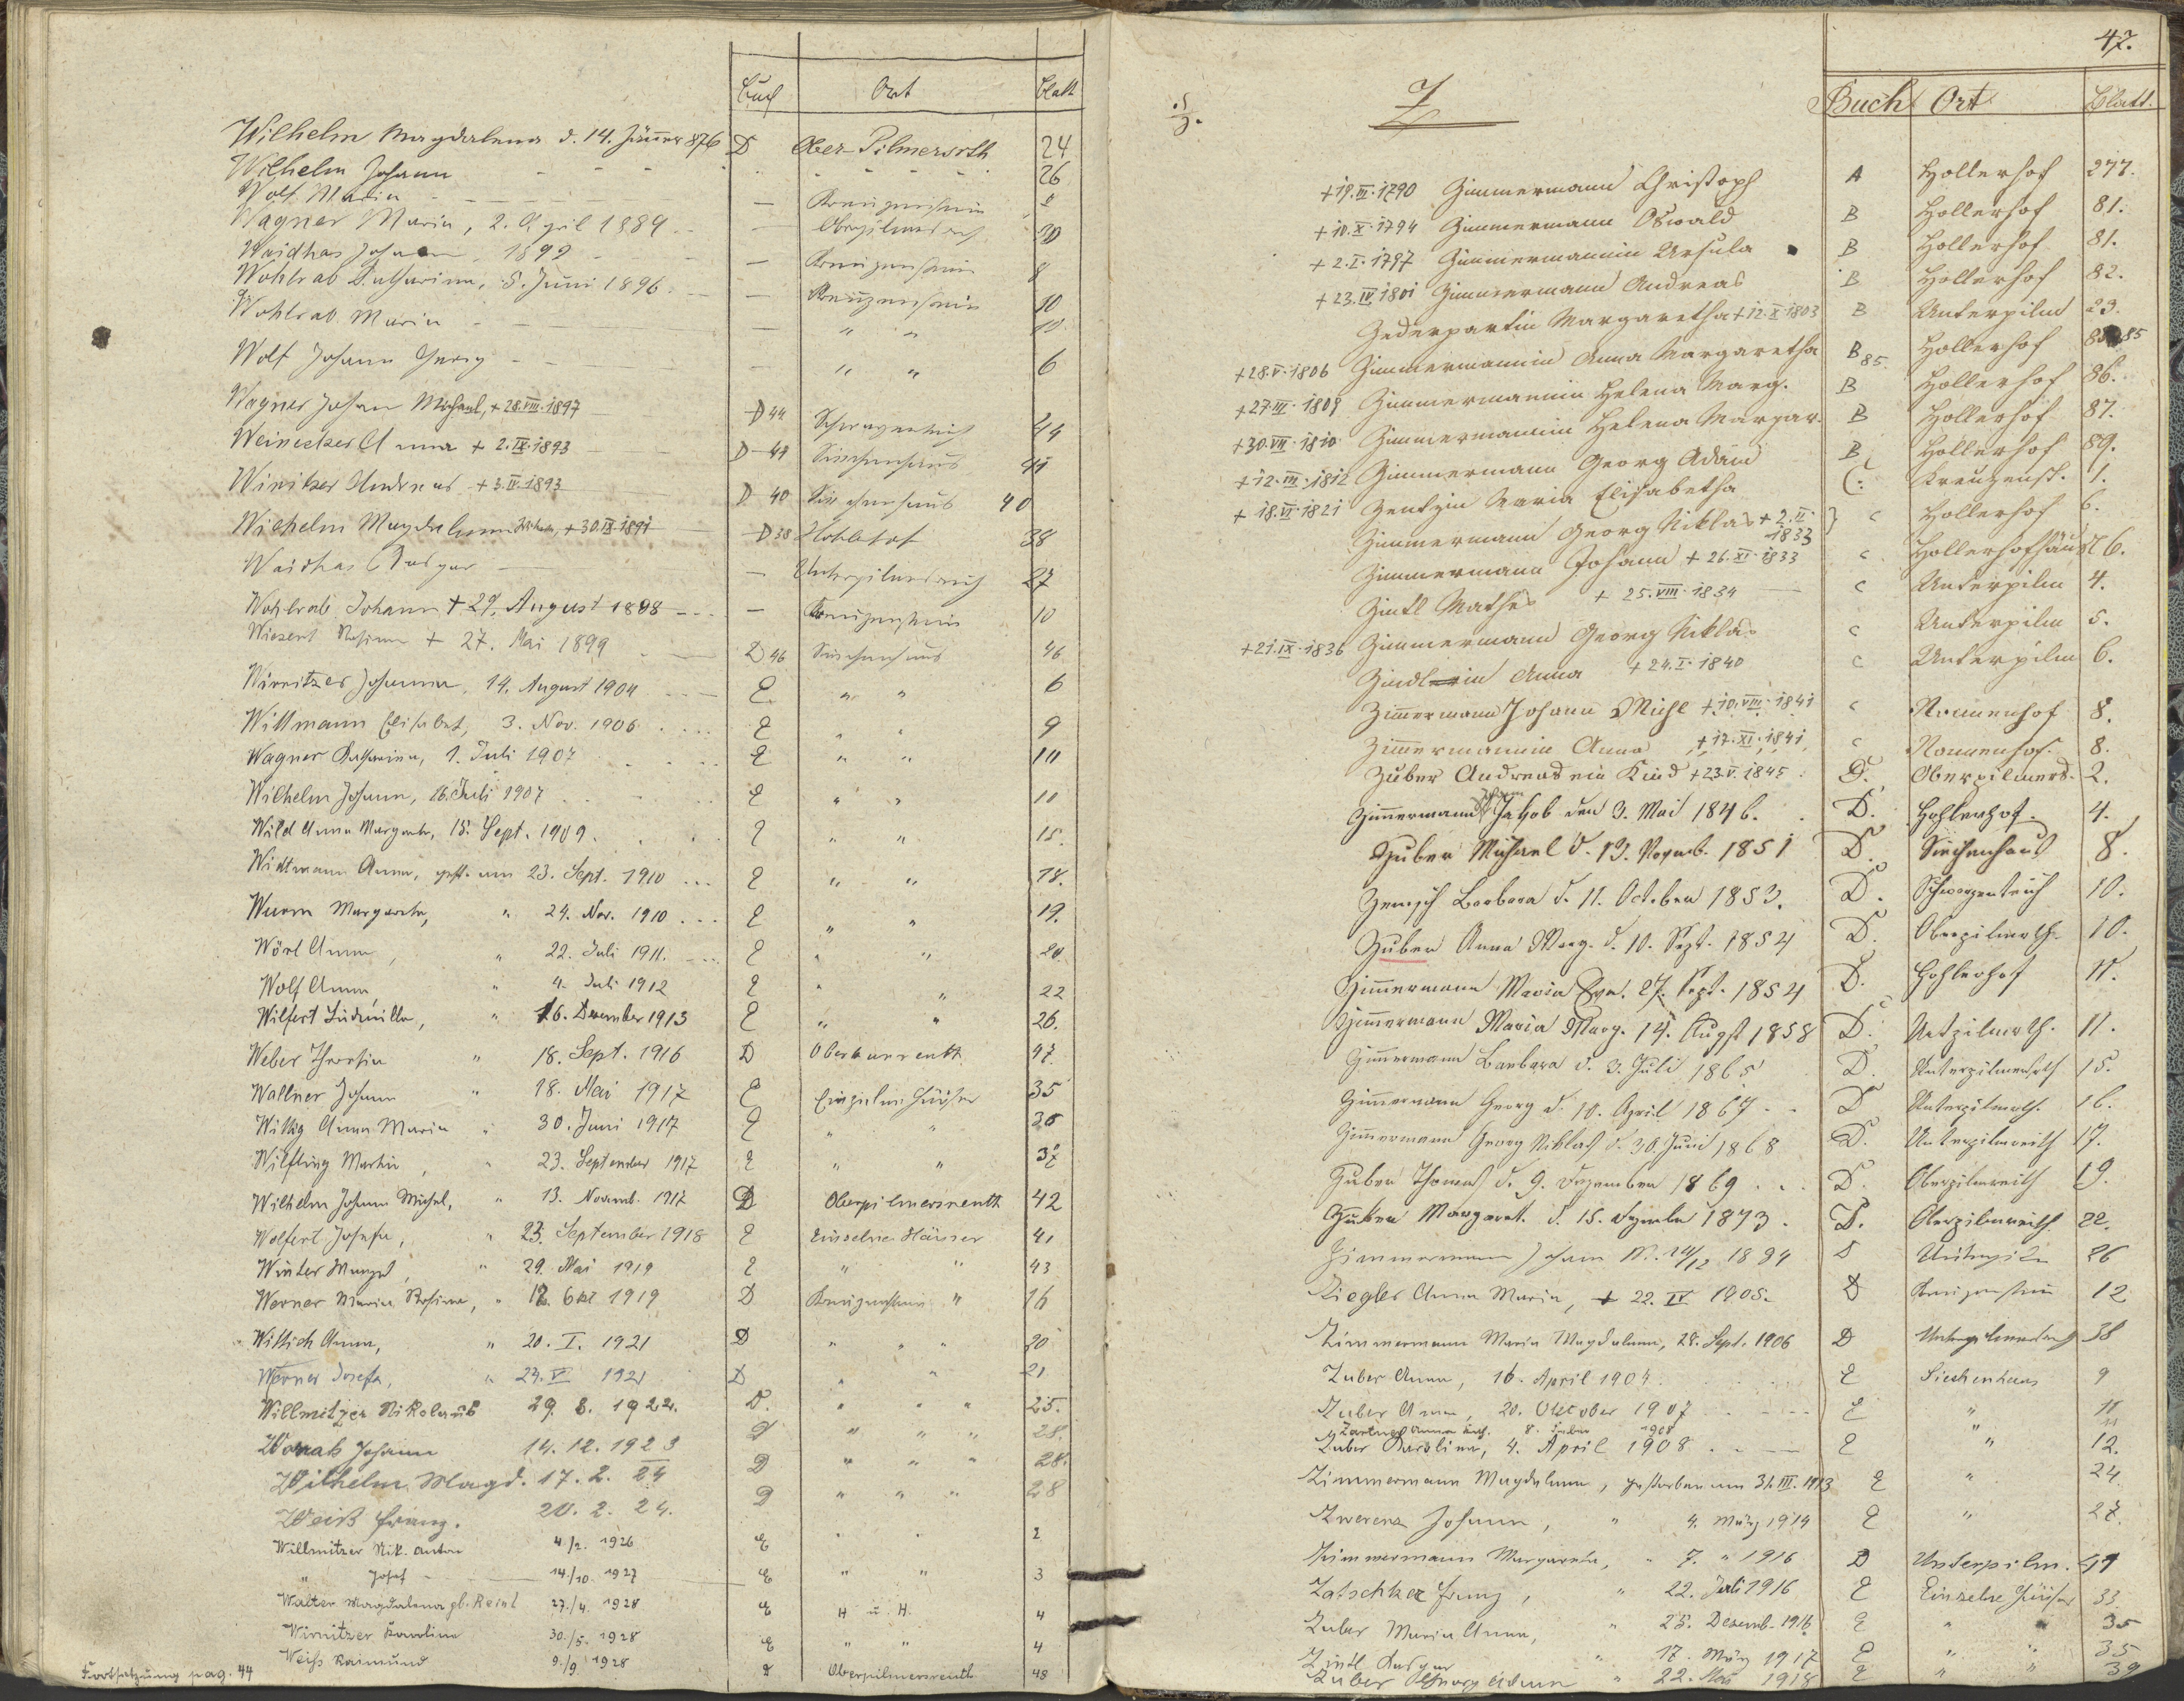 Buch Ort Blatt
Wilhelm Magdalena d. 14. Jänner 876 D Ober-Pilmersrth 24
Wilhelm Johann 26
Wolf Maria Kreuzenstein
Wagner Maria, 2. April 1889 Oberpilmersreuth 30
Waidhas Johann 1899 Kreuzenstein 8
Wohlrab Katharina, 5. Juni 1896 Kreuzenstein 10
Wohlrab Maria " " 10
Wolf Johann Georg " " 6
Wagner Johann Michael, + 28.VIII.1897 D 44 44
Weinecker Anna + 2.IX.1893 D 41 Siechenhaus 41
Andreas + 3.IV.1893 D 40 Siechenhaus 40
Wilhelm Magdalena + 30.IX.1891 D 38 38
Waidhas Kaspar Unterpilmersreuth 27
Wohlrab Johann + 29. August 1898 Kreuzenstein 10
Wiesent Rosina + 27. Mai 1899 D 46 Siechenhaus 46
Wirnitzer Johanna, 14. August 1904 E " " 6
Wittmann Elisabet, 3. Nov. 1906 E " " 9
Wagner Katharina, 1. Juli 1907 E " " 10
Wilhelm Johann, 16. Juli 1907 E " " 10
Wild Anna Margareta, 15. Sept. 1909. E " " 15.
Widtmann Anna, gest. am 23. Sept. 1910 E " " 18.
Wurm Margareta, " 24. Nov. 1910 E " " 19.
Wörl Anna, " 22. Juli 1911. E " " 20
Wolf Anna " 4. Juli 1912 E " " 22
Wilfert Ludmilla, " 16. Dezember 1913 E " " 26.
Weber Theresia " 18. Sept. 1916 D 47
Wallner Johann " 18. Mai 1917 E Einzelne Häuser 35
Wittig Anna Maria " 30. Juni 1917 E " " 36
Wilfling Martin, " 23. September 1917 E " " 37
Wilhelm Johann Michael, " 13. Novemb. 1917 D Oberpilmersreuth 42
Wolfert Josefa, " 23. September 1918 E Einzelne Häuser 41
Winter Margt, " 29. Mai 1919 E " " 43
Werner Maria Rosina, " 12. Okt 1919 D Kreuzenstein " 16
Wittich Anna, " 20. I. 1921 D " " " 20
Werner Josefa, " 23. V 1921 D " " 21
Willmitzer Nikolaus 29. 8. 1922. D. " " " 25.
Worak Johann 14. 12. 1923 D " " " 28.
Wilhelm Magd. 17. 2. 24 D " " " 28.
Weiß Franz. 20. 2. 24. D " " " 28
Willmitzer Nik. Anton 4./2. 1926 E " " 2
" Josef 14./10. 1927 E " " 3
Walter Magdalena gb. Reinl 27./4. 1928 E H. u. H. 4
Wirnitzer Karolina 30./5. 1928 E " " 4
Weiss Raimund 9./9 1928 D Oberpilmersreuth 48
Fortsetzung pag. 44
47.
Z Buch Ort Blatt.
+ 19.III.1790 Zimmermann Christoph A Hollerhof 277.
+ 10.X.1794 Zimmermann Oswald B Hollerhof 81.
+ 2.I.1797 Zimmermannin Ursula B Hollerhof 81.
+ 23.IV.1801 Zimmermann Andreas B Hollerhof 82.
Margaretha + 12.X.1803 B Unterpilm 23.
+ 28.V.1806 Zimmermannin Anna Margaretha B 85. Hollerhof 85
+ 27.III.1809 Zimmermannin Helena Marg. B Hollerhof 86.
+ 30.VII.1810 Zimmermannin Helena Margar. B Hollerhof 87.
+ 12.III.1812 Zimmermann Georg Adam B Hollerhof 89.
+ 18.VI.1821 Maria Elisabetha C. Kreuzenst. 1.
Zimmermann Georg Niklas + 2.II.1833 c Hollerhof 6.
Zimmermann Johann + 26.XI.1833 c 6.
Zintl Mathes + 25.VIII.1834 c Unterpilm 4.
+ 21.IX.1836 Zimmermann Georg Niklas c Unterpilm 5.
Anna + 24.I.1840 c Unterpilm 6.
Zimmermann Johann Michl + 10.VIII.1841 c Nonnenhof 8.
Zimmermannin Anna + 17.XI.1841 c Nonnenhof. 8.
Zuber Andreas ein Kind + 23.V.1845 D. Oberpilmers. 2.
Zimmermann Johann Jakob den 3. Mai 1846. D. Hohlerhof. 4.
Zuber Michael d. 13. Novemb. 1851 D. Siechenhaus 8.
Barbara d. 11. October 1853. D. 10.
Zuber Anna Marg. d. 10. Sept. 1854 D. Oberpilmrth. 10.
Zimmermann Maria Eva. 27. Sept. 1854 D. Hohlerhof 11.
Zimmermann Maria Marg. 14. Augst 1858 D. Untpilmrth. 11.
Zimmermann Barbara d. 3. Juli 1865 D. Unterpilmersrth 15.
Zimmermann Georg d. 10. April 1867 D Unterpilmrth. 16.
Zimmermann Georg Niklas d. 30. Juni 1868 D. Unterpilmreith 17.
Zuber Thomas d. 9. Dezember 1869 D. Oberpilmreith 19.
Zuber Margaret. d. 15. Dezembr 1873. D. Oberpilmreith. 22.
Zimmermann Johann N. 14/12 1884 D 26
Ziegler Anna Maria, + 22. IV 1905. D Kreuzenstein 12
Zimmermann Maria Magdalena, 28. Sept. 1906 D Unterpilmersreuth 38
Zuber Anna, 16. April 1904. E Siechenhaus 9
Zuber Anna, 20. Oktober 1907 E " 11
Anna Kath. 8. 1908 " 11
Zuber Karolina, 4. April 1908 E " 12.
Zimmermann Magdalena, gestorben am 31.III.1913 E " 24
Zwerenz Johann, " 4. März 1914 E " 27.
Zimmermann Margareta, " 7. " 1916 D Unterpilm. 41
Zatschker Franz, " 22. Juli 1916 E Einzelne Häuser 33.
Zuber Maria Anna, " 25. Dezemb. 1916 E " " 35
Zintl Kaspar " 17. März 1917 E " " 35
Zuber Georg Adam " 22. Mai 1918 E " " 39